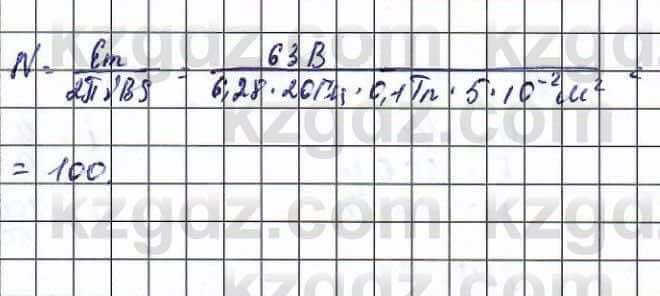 N = Em / 2πνBS = 63 В / 6,28 · 20 Гц · 0,1 Тл · 5 · 10⁻² м² =
= 100.
kzgdz.com kzgdz.com
kzgdz.com kzgdz.com